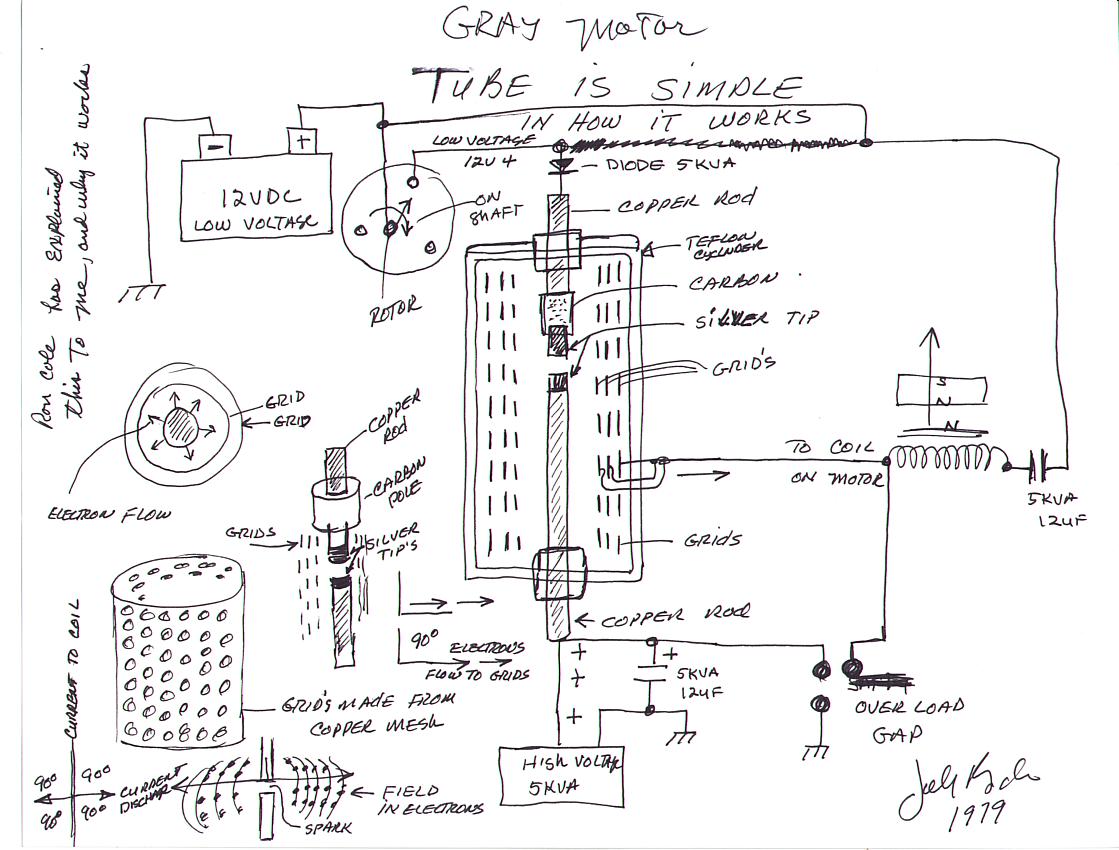 GRAY MOTOR
TUBE IS SIMPLE
IN HOW IT WORKS
Ron Cole has explained
this To me, and why it works
-
+
12VDC
LOW VOLTAGE
LOW VOLTAGE
12V +
DIODE 5KVA
ON
SHAFT
ROTOR
COPPER ROD
TEFLON
CYLINDER
CARBON
SILVER TIP
GRID'S
S
N
N
TO COIL
ON MOTOR
5KVA
12UF
GRID
GRID
ELECTRON FLOW
COPPER
ROD
CARBON
POLE
GRIDS
SILVER
TIP'S
GRIDS
COPPER ROD
90°
ELECTRONS
FLOW TO GRIDS
+
+
+
+
5KVA
12UF
OVER LOAD
GAP
HIGH VOLTAGE
5KVA
GRID'S MADE FROM
COPPER MESH
CURRENT TO COIL
90°
90°
90°
90°
CURRENT
FIELD
IN ELECTRONS
SPARK
1979